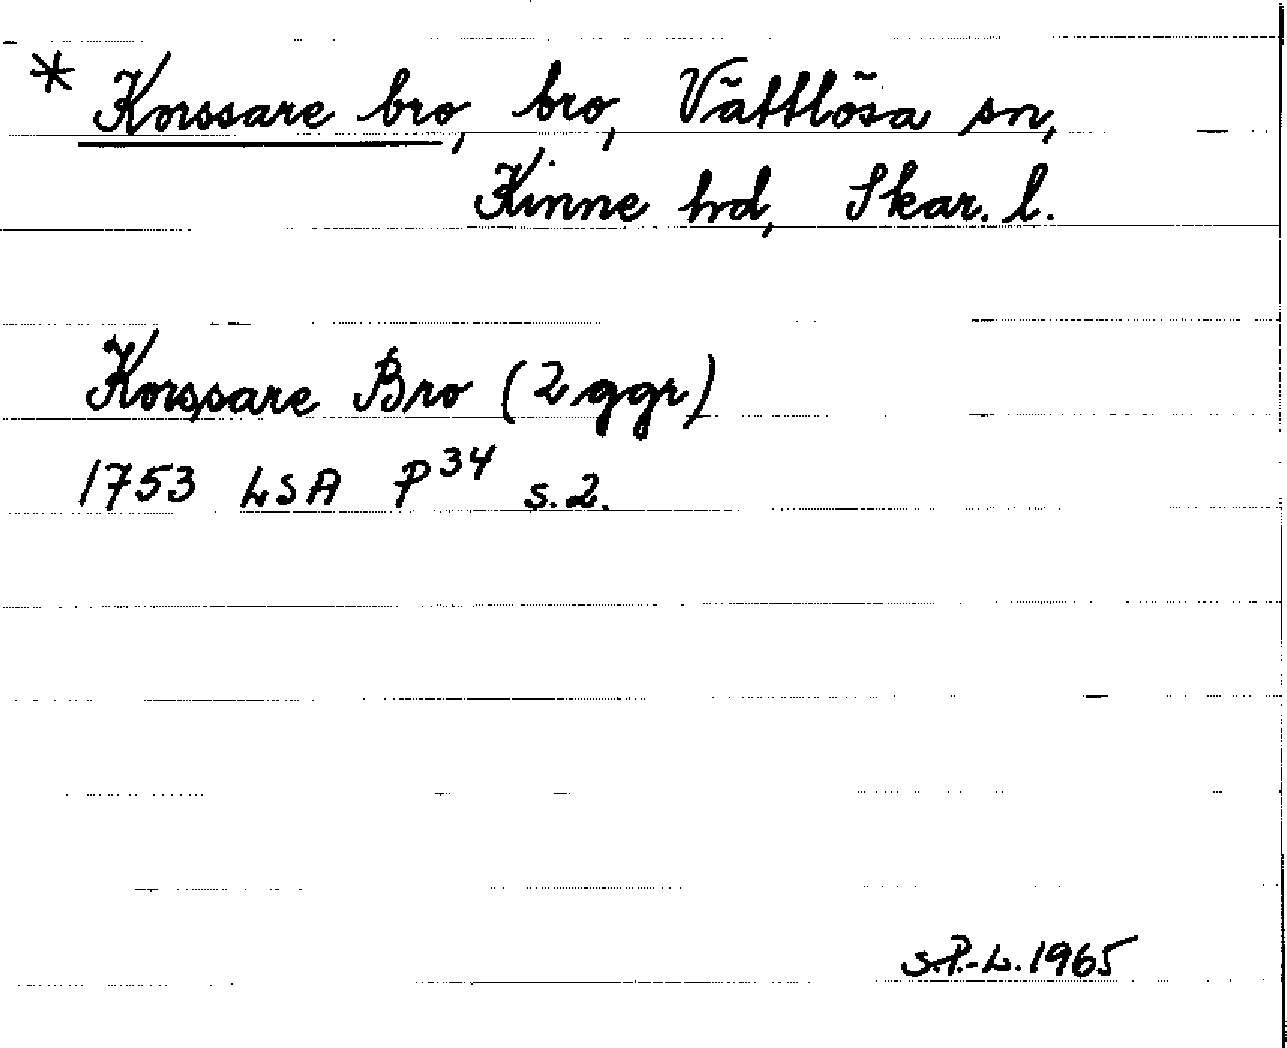 * Korssare bro, bro, Vättlösa sn,
Kinne hd, Skar. l.
Korssare Bro (2 ggr)
1753 LSA P34 s.2.
S.P.-L. 1965